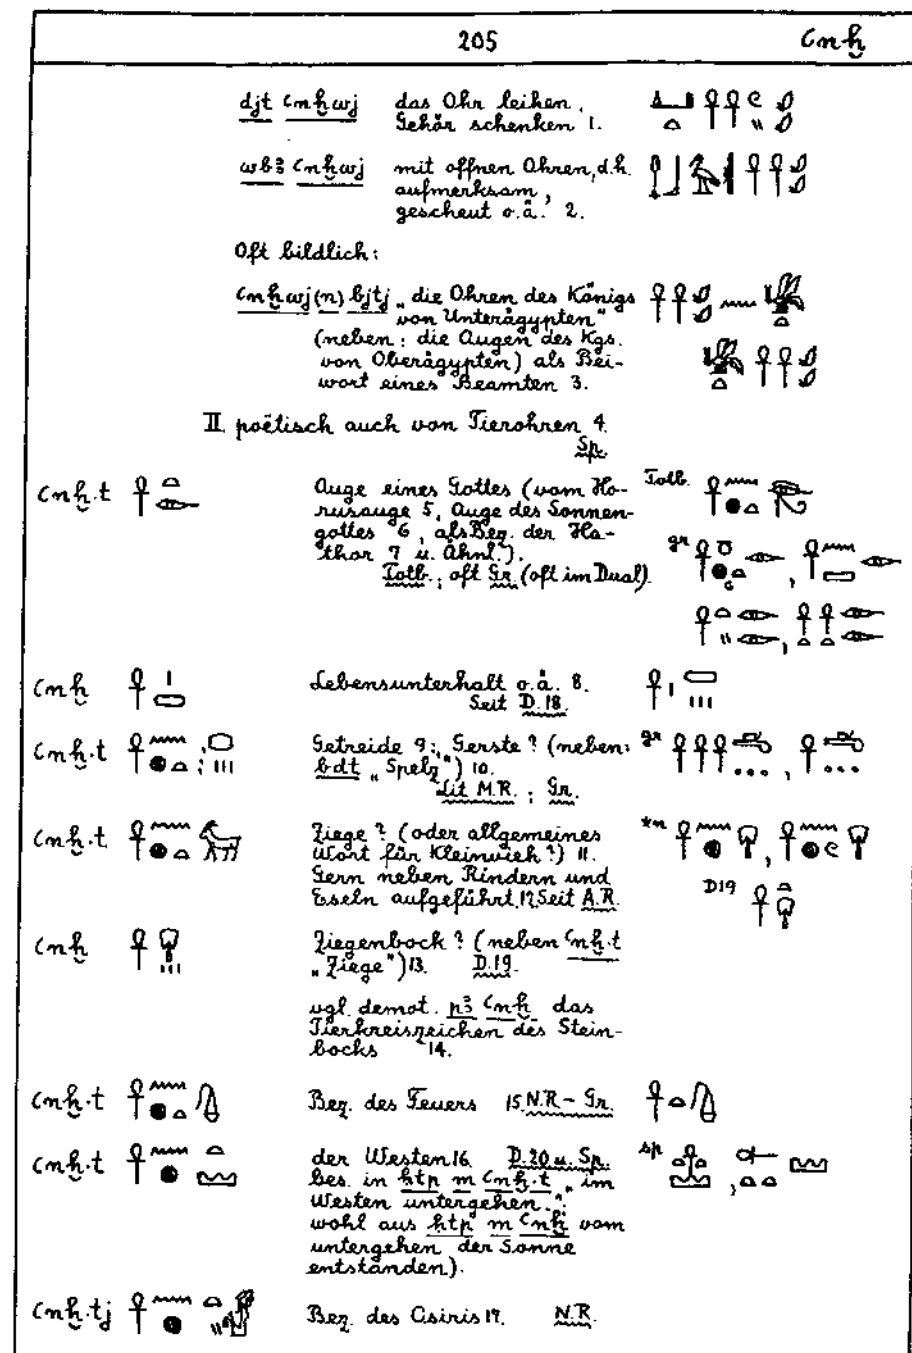 205 ꜥnḫ
djt ꜥnḫwj das Ohr leihen,
Gehör schenken 1.
wbꜣ ꜥnḫwj mit offnen Ohren, d.h.
aufmerksam,
gescheut o.ä. 2.
Oft bildlich:
ꜥnḫwj (n) bjtj „die Ohren des Königs
von Unterägypten"
(neben: die Augen des Kgs.
von Oberägypten) als Bei-
wort eines Beamten 3.
II. poëtisch auch von Tierohren 4.
Sp.
ꜥnḫ.t Auge eines Gottes (vom Ho- Totb.
rusauge 5, Auge des Sonnen-
gottes 6, als Bez. der Ha- gr
thor 7 u. Ähnl.).
Totb.; oft Gr. (oft im Dual).
ꜥnḫ Lebensunterhalt o.ä. 8.
Seit D.18.
ꜥnḫ.t Getreide 9; Gerste? (neben: gr
bdt „Spelz") 10.
Lit. M.R.; Gr.
ꜥnḫ.t Ziege? (oder allgemeines *n
Wort für Kleinvieh?) 11.
Gern neben Rindern und D19
Eseln aufgeführt. 12. Seit A.R.
ꜥnḫ Ziegenbock? (neben ꜥnḫ.t
„Ziege") 13. D.19.
vgl. demot. pꜣ ꜥnḫ das
Tierkreiszeichen des Stein-
bocks 14.
ꜥnḫ.t Bez. des Feuers 15. N.R – Gr.
ꜥnḫ.t der Westen 16. D.20 u. Sp. sp
bes. in ḥtp m ꜥnḫ.t „im
Westen untergehen.":
wohl aus ḥtp m ꜥnḫ vom
untergehen der Sonne
entstanden).
ꜥnḫ.tj Bez. des Osiris 17. N.R.